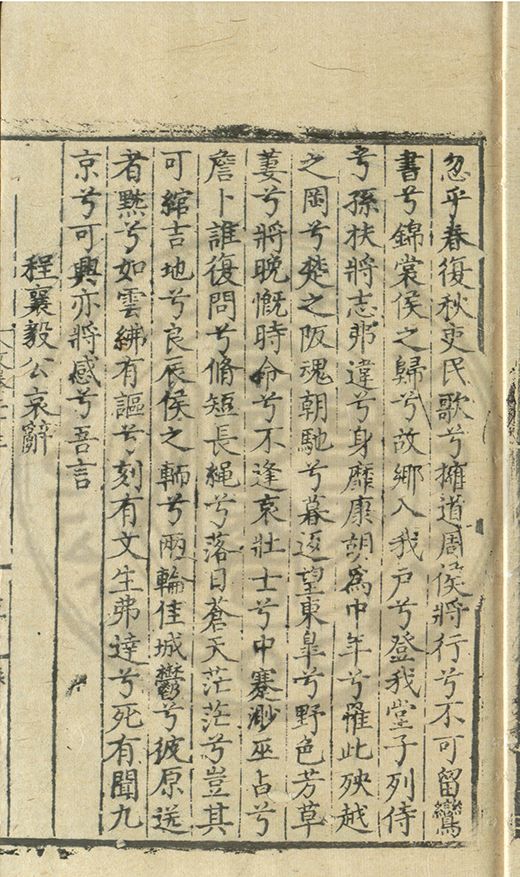 忽乎春復秋吏民歌兮擁道周侯將行兮不可留鸞
書兮錦棠侯之歸兮故鄉入我戶兮登我堂子列侍
兮孫扶將志弗違兮身靡康胡爲中年兮罹此殃越
之岡兮楚之阪魂朝馳兮暮返望東皐兮野色芳草
萋兮將晚慨時命兮不逢哀壯士兮中蹇渺巫占兮
詹卜誰復問兮脩短長繩兮落日蒼天茫茫兮豈其
可綰吉地兮良辰侯之輀兮兩輪佳城鬱兮彼原送
者黙兮如雲紼有謳兮刻有文生弗達兮死有聞九
京兮可興亦將感兮吾言
程襄毅公哀辭